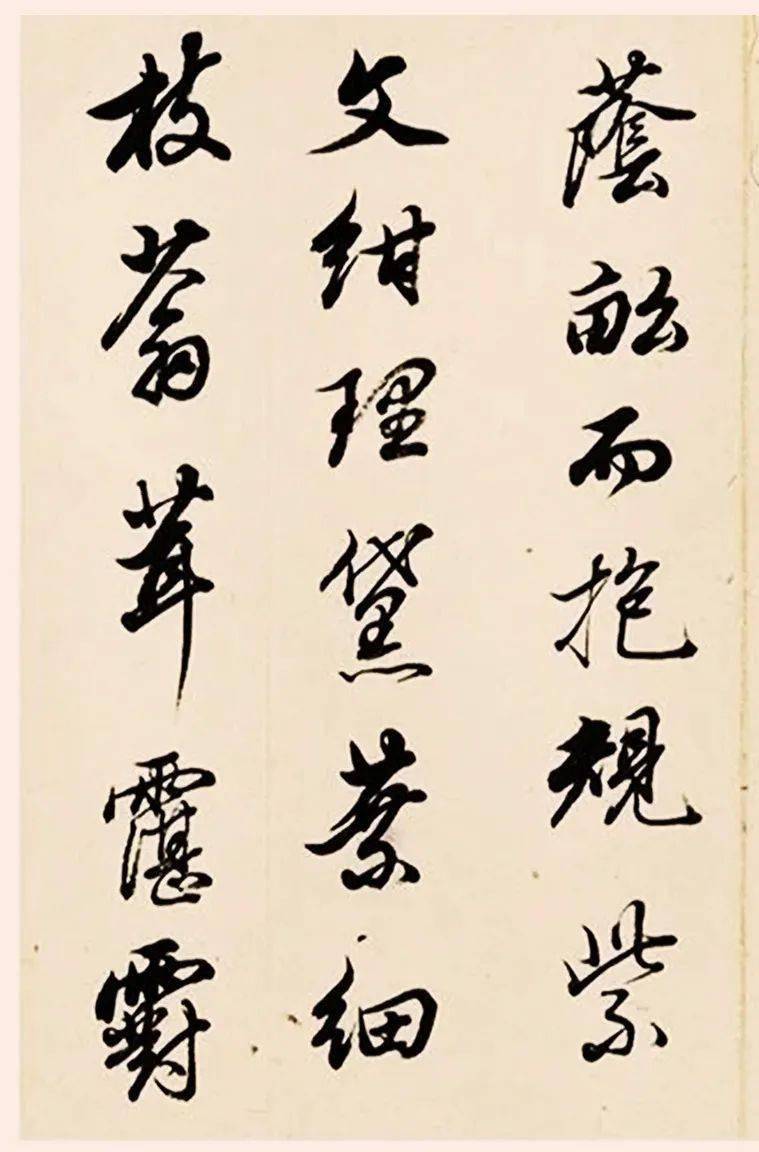 蔭畝而抱規紫
文紺理黛葉細
枝蓊茸霮䨴